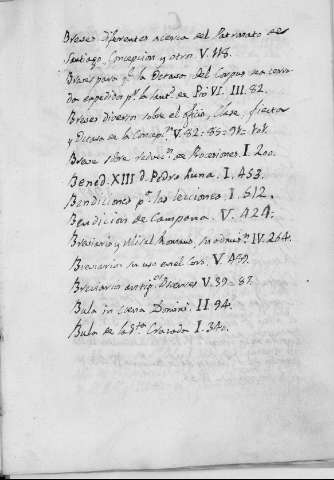 Breves diferentes acerca del Patronato de
Santiago, Concepcion y otros V. 118.
Breves para qe. la Octava del Corpus sea cerra-
da expedidos pr. la Santd. de Pio VI. III. 82.
Breves diversos sobre el oficio, Clase, fiestas
y Octava de la Concepn. V. 82-
Breve sobre reducn. de Procesiones. I. 200.
Bened. XIII d. Pedro Luna. I. 453.
Bendiciones pa. las lecciones. I. 512.
Bendicion de Campana. V. 424.
Breviario y Misal Romano, su admisn. IV. 264.
Breviarios su uso en el Coro. V. 459.
Breviarios antigs. Diversos V. 39-87.
Bula in Coena Domini. II. 94.
Bula de la Sta. Cruzada I. 340.